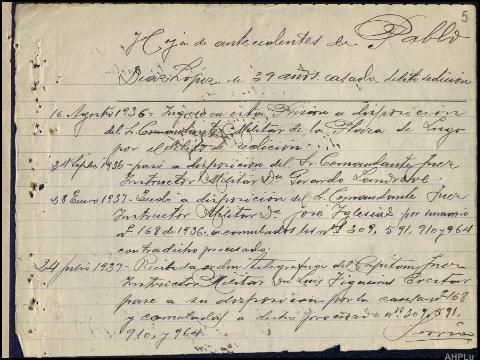 5
Hoja de antecedentes de Pablo
Díaz López de 39 años. casado, delito sedición
16 Agosto 1936 - Ingresó en esta Prisión a disposición
del Sr. Comandante Militar de la Plaza de Lugo
por el delito de sedición.
24 Sepbre 1936 - pasó a disposición del Sr. Comandante Juez
Instructor Militar Dn Gerardo
28 Enero 1937 - Quedó a disposición del Sr. Comandante Juez
Instructor Militar Dn José Iglesias por sumario
nº 168 de 1936 - acumulados los nºs 309, 591, 910 y 964
contra dicho procesado;
24 julio 1937 - Recibida orden telegráfica del Capitán Juez
Instructor Militar Dn Luis Figueras
pase a su disposición por la causa nº 168
y acumulados a dicho procesado nºs 309, 591,
910, y 964
AHPLu